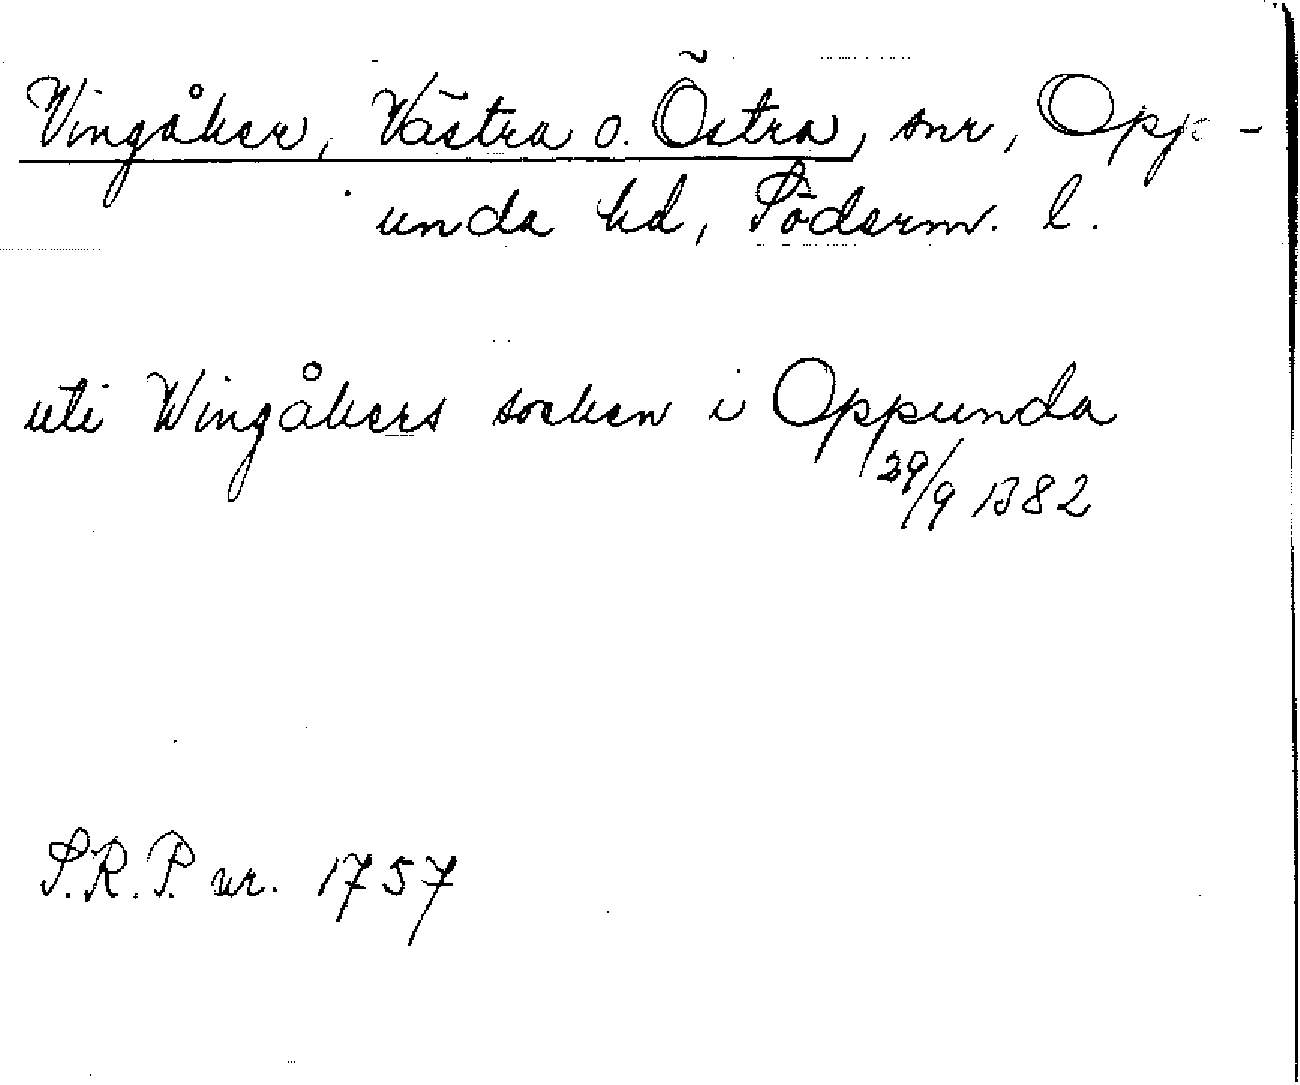 Vingåker, Västra o. Östra, snr, Opp-
unda hd, Söderm. l.
uti Wingåkers socken i Oppunda
29/9 1382
S.R.P. nr. 1757